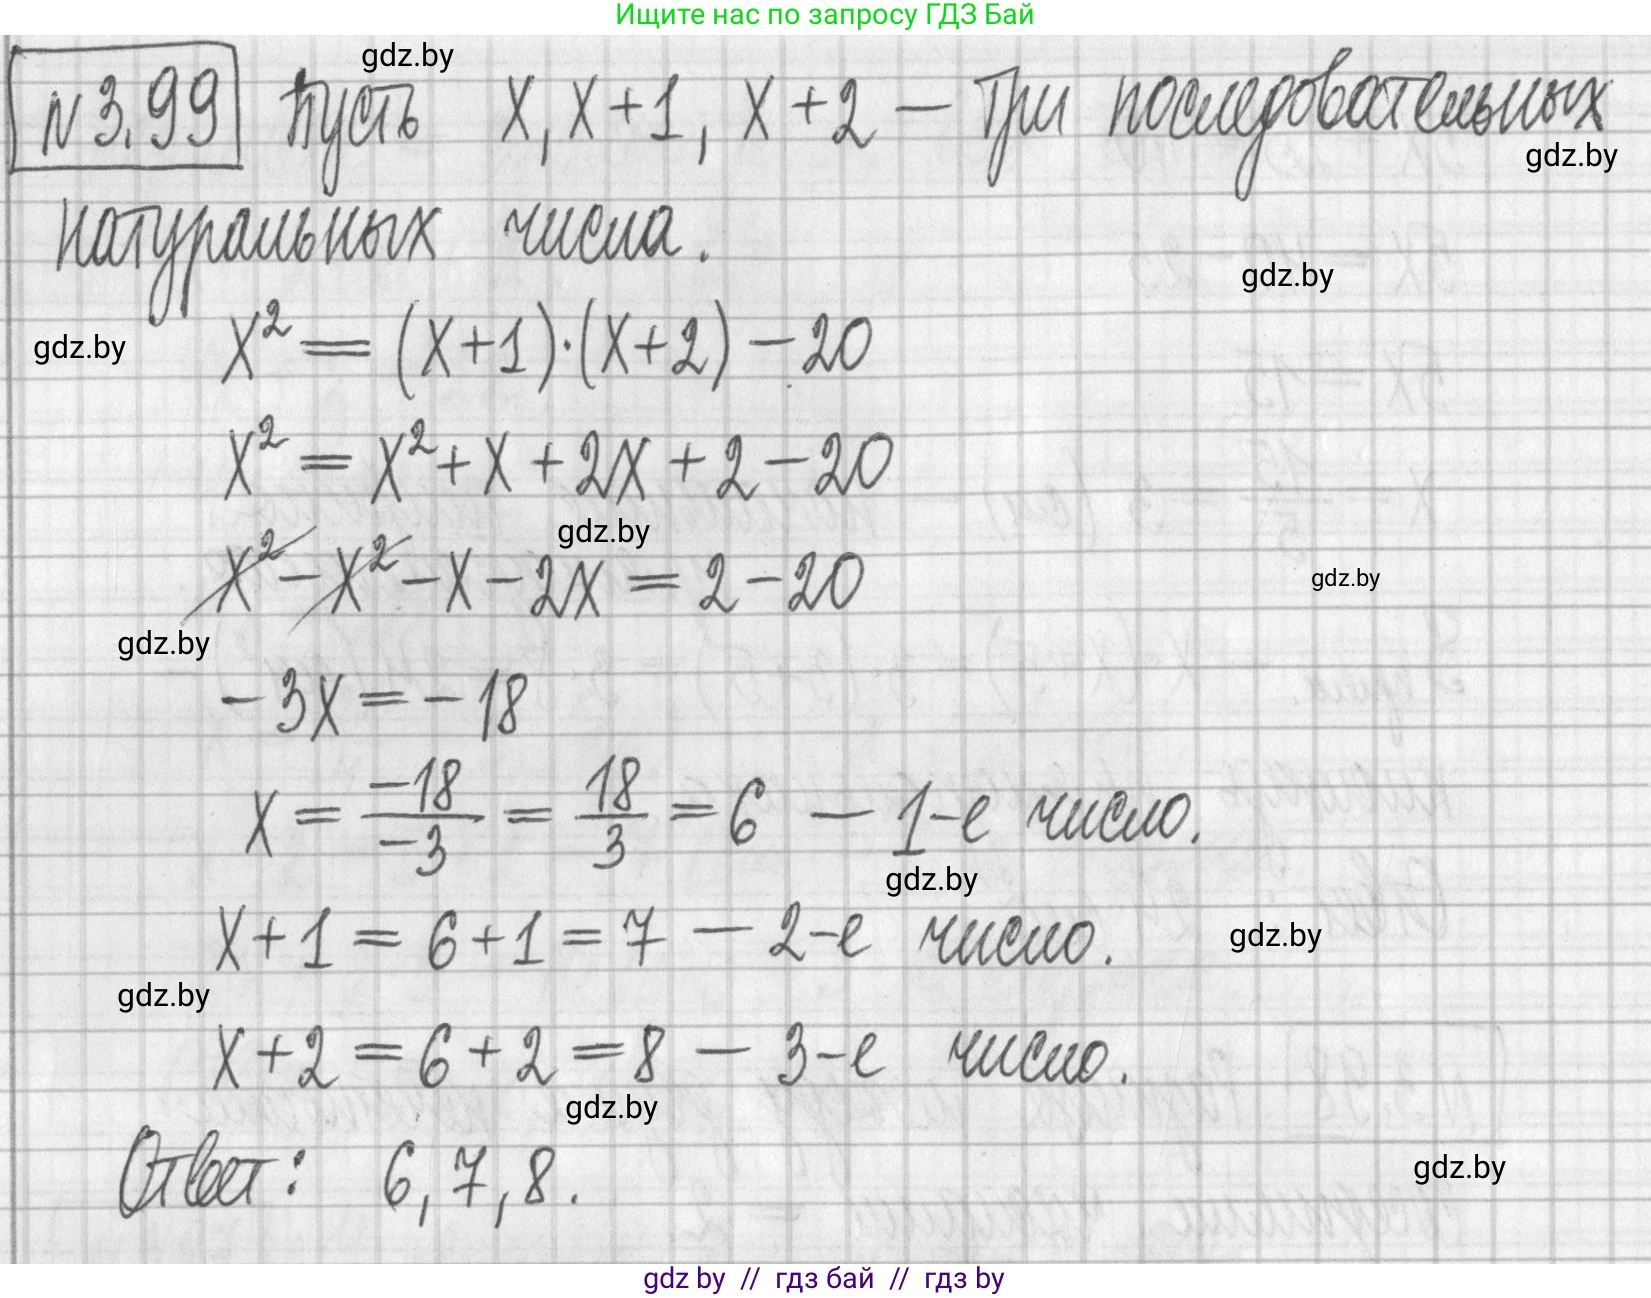 Ищите нас по запросу ГДЗ Бай
gdz.by
N 3.99 Пусть x, x+1, x+2 — три последовательных
gdz.by
натуральных числа.
gdz.by
x² = (x+1)·(x+2) - 20
gdz.by
x² = x² + x + 2x + 2 - 20
gdz.by
x² - x² - x - 2x = 2 - 20
gdz.by
gdz.by
-3x = -18
x = -18/-3 = 18/3 = 6 — 1-е число.
gdz.by
x+1 = 6+1 = 7 — 2-е число.
gdz.by
gdz.by
x+2 = 6+2 = 8 — 3-е число.
gdz.by
Ответ: 6, 7, 8.
gdz.by
gdz by // гдз бай // гдз by